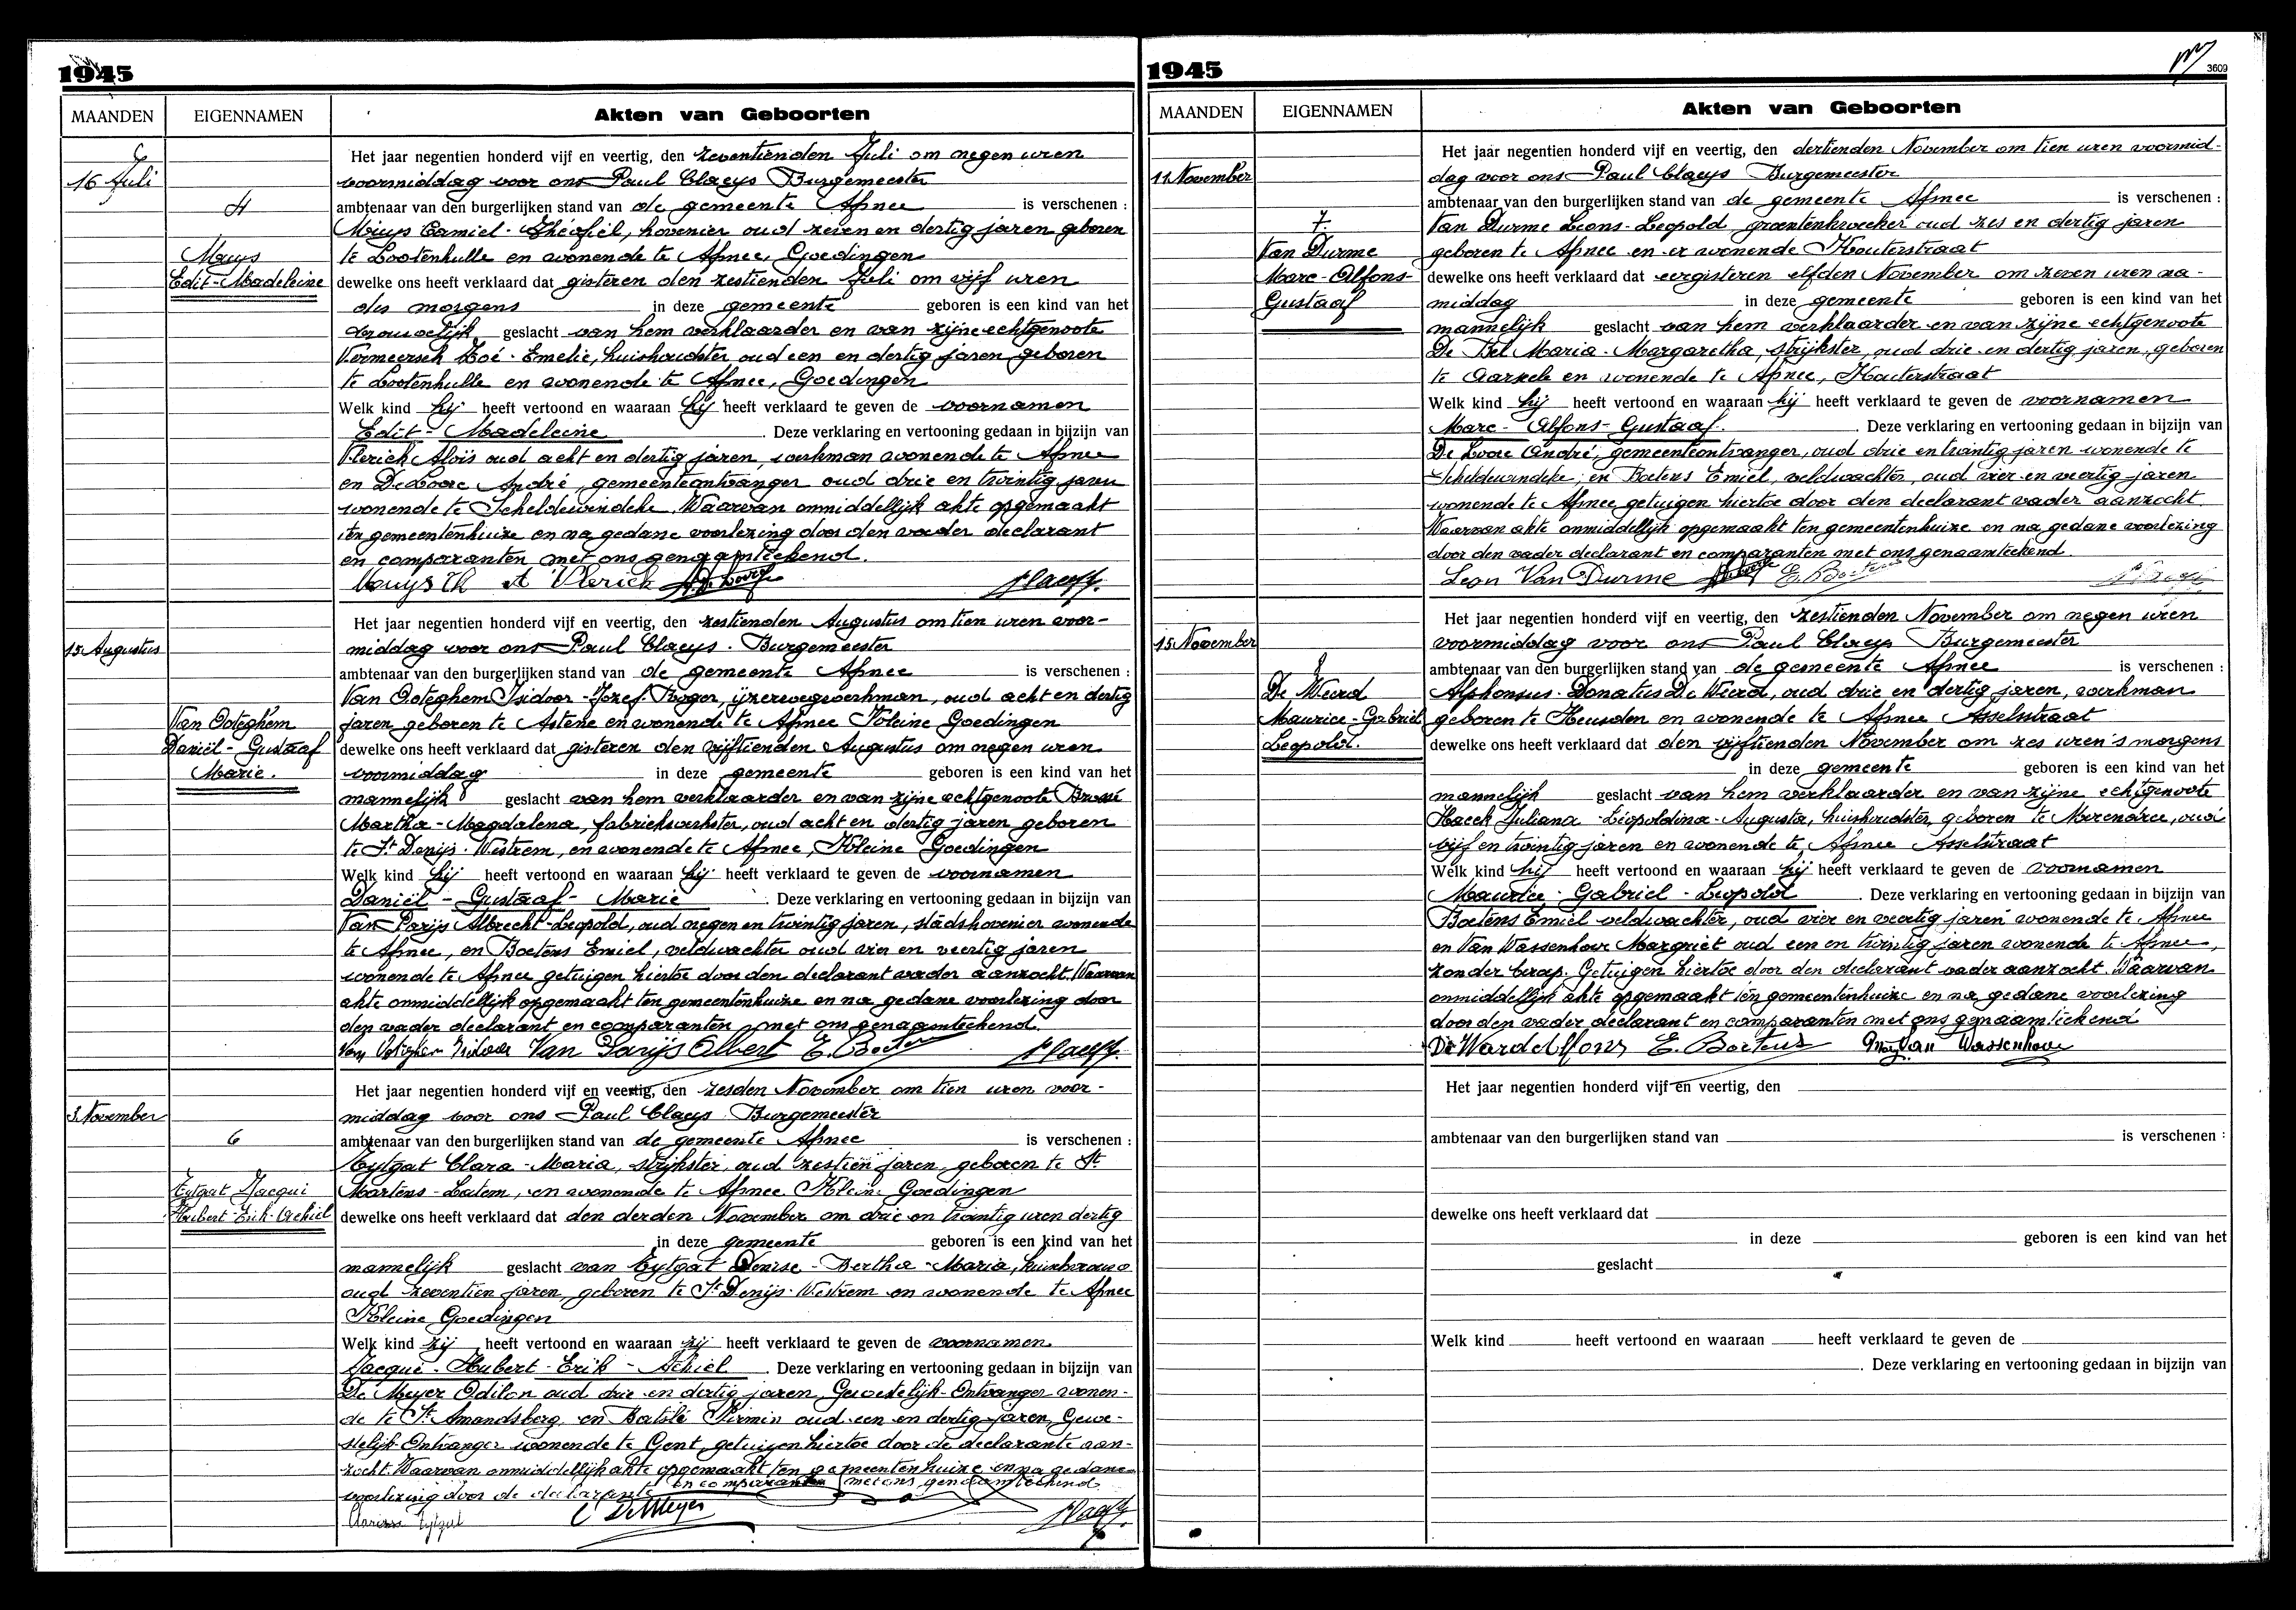 1945
MAANDEN EIGENNAMEN Akten van Geboorten
Het jaar negentien honderd vijf en veertig, den zeventienden Juli om negen uren
16 Juli voormiddag voor ons Paul Claeys Burgemeester
4 ambtenaar van den burgerlijken stand van de gemeente Afsnee is verschenen :
Camiel-Théofiel, hovenier oud zeven en dertig jaren geboren
te Lootenhulle en wonende te Afsnee, Goedingen
Edit-Madeleine dewelke ons heeft verklaard dat gisteren den zestienden Juli om vijf uren
des morgens in deze gemeente geboren is een kind van het
vrouwelijk geslacht van hem verklaarder en van zijne echtgenoote
Vermeersch Zoé-Emelie, huishoudster oud een en dertig jaren geboren
te Lootenhulle en wonende te Afsnee, Goedingen
Welk kind hij heeft vertoond en waaraan hij heeft verklaard te geven de voornamen
Edit-Madeleine. Deze verklaring en vertooning gedaan in bijzijn van
Vlerick Aloïs oud acht en dertig jaren, werkman wonende te Afsnee
en De Loore André, gemeenteontvanger oud drie en twintig jaren
wonende te Scheldewindeke. Waarvan onmiddellijk akte opgemaakt
ten gemeentenhuize en na gedane voorlezing door den vader declarant
en comparanten met ons genaamteekend.
A Vlerick
Het jaar negentien honderd vijf en veertig, den zestienden Augustus om tien uren voor-
15 Augustus middag voor ons Paul Claeys. Burgemeester
ambtenaar van den burgerlijken stand van de gemeente Afsnee is verschenen :
Van Ooteghem Isidoor-Jozef-Roger, ijzerwegwerkman, oud acht en dertig
Van Ooteghem jaren geboren te Astene en wonende te Afsnee Kleine Goedingen
Daniël-Gustaaf dewelke ons heeft verklaard dat gisteren den vijftienden Augustus om negen uren
Marie. voormiddag in deze gemeente geboren is een kind van het
mannelijk geslacht van hem verklaarder en van zijne echtgenoote
Martha-Magdalena, fabriekwerkster, oud acht en dertig jaren geboren
te St Denijs-Westrem, en wonende te Afsnee, Kleine Goedingen
Welk kind hij heeft vertoond en waaraan hij heeft verklaard te geven de voornamen
Daniël-Gustaaf-Marie. Deze verklaring en vertooning gedaan in bijzijn van
Van Parijs Albrecht-Leopold, oud negen en twintig jaren, stadshovenier wonende
te Afsnee, en Boetens Emiel, veldwachter oud vier en veertig jaren
wonende te Afsnee getuigen hiertoe door den declarant vader aanzocht. Waarvan
akte onmiddellijk opgemaakt ten gemeentenhuize en na gedane voorlezing door
den vader declarant en comparanten met ons genaamteekend.
Van Ooteghem Isidoor Van Parijs Albert E. Boetens
Het jaar negentien honderd vijf en veertig, den zesden November om tien uren voor-
3 November middag voor ons Paul Claeys Burgemeester
6 ambtenaar van den burgerlijken stand van de gemeente Afsnee is verschenen :
Eytgat Clara-Maria, strijkster, oud zestien jaren, geboren te St
Eytgat Jacqui Martens-Latem, en wonende te Afsnee Kleine Goedingen
Hubert-Erik-Achiel dewelke ons heeft verklaard dat den derden November om drie en twintig uren dertig
in deze gemeente geboren is een kind van het
mannelijk geslacht van Eytgat Denise-Bertha-Maria,
oud zeventien jaren, geboren te St Denijs-Westrem en wonende te Afsnee
Kleine Goedingen
Welk kind zij heeft vertoond en waaraan zij heeft verklaard te geven de voornamen
Jacqui-Hubert-Erik-Achiel. Deze verklaring en vertooning gedaan in bijzijn van
De Meyer Odilon oud drie en dertig jaren, Gewestelijk-Ontvanger wonen-
de te St Amandsberg, en Firmin oud een en dertig jaren, Gewe-
stelijk Ontvanger wonende te Gent, getuigen hiertoe door de declarante aan-
zocht. Waarvan onmiddellijk akte opgemaakt ten gemeentenhuize en na gedane
voorlezing door de declarante en comparanten met ons genaamteekend
Eytgat De Meyer
1945
3609
MAANDEN EIGENNAMEN Akten van Geboorten
Het jaar negentien honderd vijf en veertig, den dertienden November om tien uren voormid-
11 November dag voor ons Paul Claeys Burgemeester
ambtenaar van den burgerlijken stand van de gemeente Afsnee is verschenen :
7. Van Durme Leons-Leopold, groentenkweeker oud zes en dertig jaren
Van Durme geboren te Afsnee en er wonende Kouterstraat
Marc-Alfons- dewelke ons heeft verklaard dat eergisteren elfden November om zeven uren na-
Gustaaf middag in deze gemeente geboren is een kind van het
mannelijk geslacht van hem verklaarder en van zijne echtgenoote
De Bel Maria-Margaretha, strijkster, oud drie en dertig jaren, geboren
te Aarsele en wonende te Afsnee, Kouterstraat
Welk kind hij heeft vertoond en waaraan hij heeft verklaard te geven de voornamen
Marc-Alfons-Gustaaf. Deze verklaring en vertooning gedaan in bijzijn van
De Loore André, gemeenteontvanger, oud drie en twintig jaren wonende te
Scheldewindeke, en Boetens Emiel, veldwachter, oud vier en veertig jaren
wonende te Afsnee getuigen hiertoe door den declarant vader aanzocht.
Waarvan akte onmiddellijk opgemaakt ten gemeentenhuize en na gedane voorlezing
door den vader declarant en comparanten met ons genaamteekend.
Leon Van Durme E. Boetens
Het jaar negentien honderd vijf en veertig, den zestienden November om negen uren
15 November voormiddag voor ons Paul Claeys Burgemeester
8 ambtenaar van den burgerlijken stand van de gemeente Afsnee is verschenen :
De Weerd Alphonsus-Donatus De Weerd, oud drie en dertig jaren, werkman
Maurice-Gabriel geboren te Heusden en wonende te Afsnee Asselsstraat
Leopold. dewelke ons heeft verklaard dat den vijftienden November om zes uren 's morgens
in deze gemeente geboren is een kind van het
mannelijk geslacht van hem verklaarder en van zijne echtgenoote
Haeck Juliana-Leopoldina-Augusta, huishoudster, geboren te Merendree, oud
vijf en twintig jaren en wonende te Afsnee Asselstraat
Welk kind hij heeft vertoond en waaraan hij heeft verklaard te geven de voornamen
Maurice-Gabriel-Leopold. Deze verklaring en vertooning gedaan in bijzijn van
Boetens Emiel veldwachter, oud vier en veertig jaren wonende te Afsnee
en Van Wassenhove Margriet oud een en twintig jaren wonende te Afsnee,
zonder beroep. Getuigen hiertoe door den declarant vader aanzocht. Waarvan
onmiddellijk akte opgemaakt ten gemeentenhuize en na gedane voorlezing
door den vader declarant en comparanten met ons genaamteekend
E. Boetens Van Wassenhove
Het jaar negentien honderd vijf en veertig, den
ambtenaar van den burgerlijken stand van is verschenen :
dewelke ons heeft verklaard dat
in deze geboren is een kind van het
geslacht
Welk kind heeft vertoond en waaraan heeft verklaard te geven de
. Deze verklaring en vertooning gedaan in bijzijn van